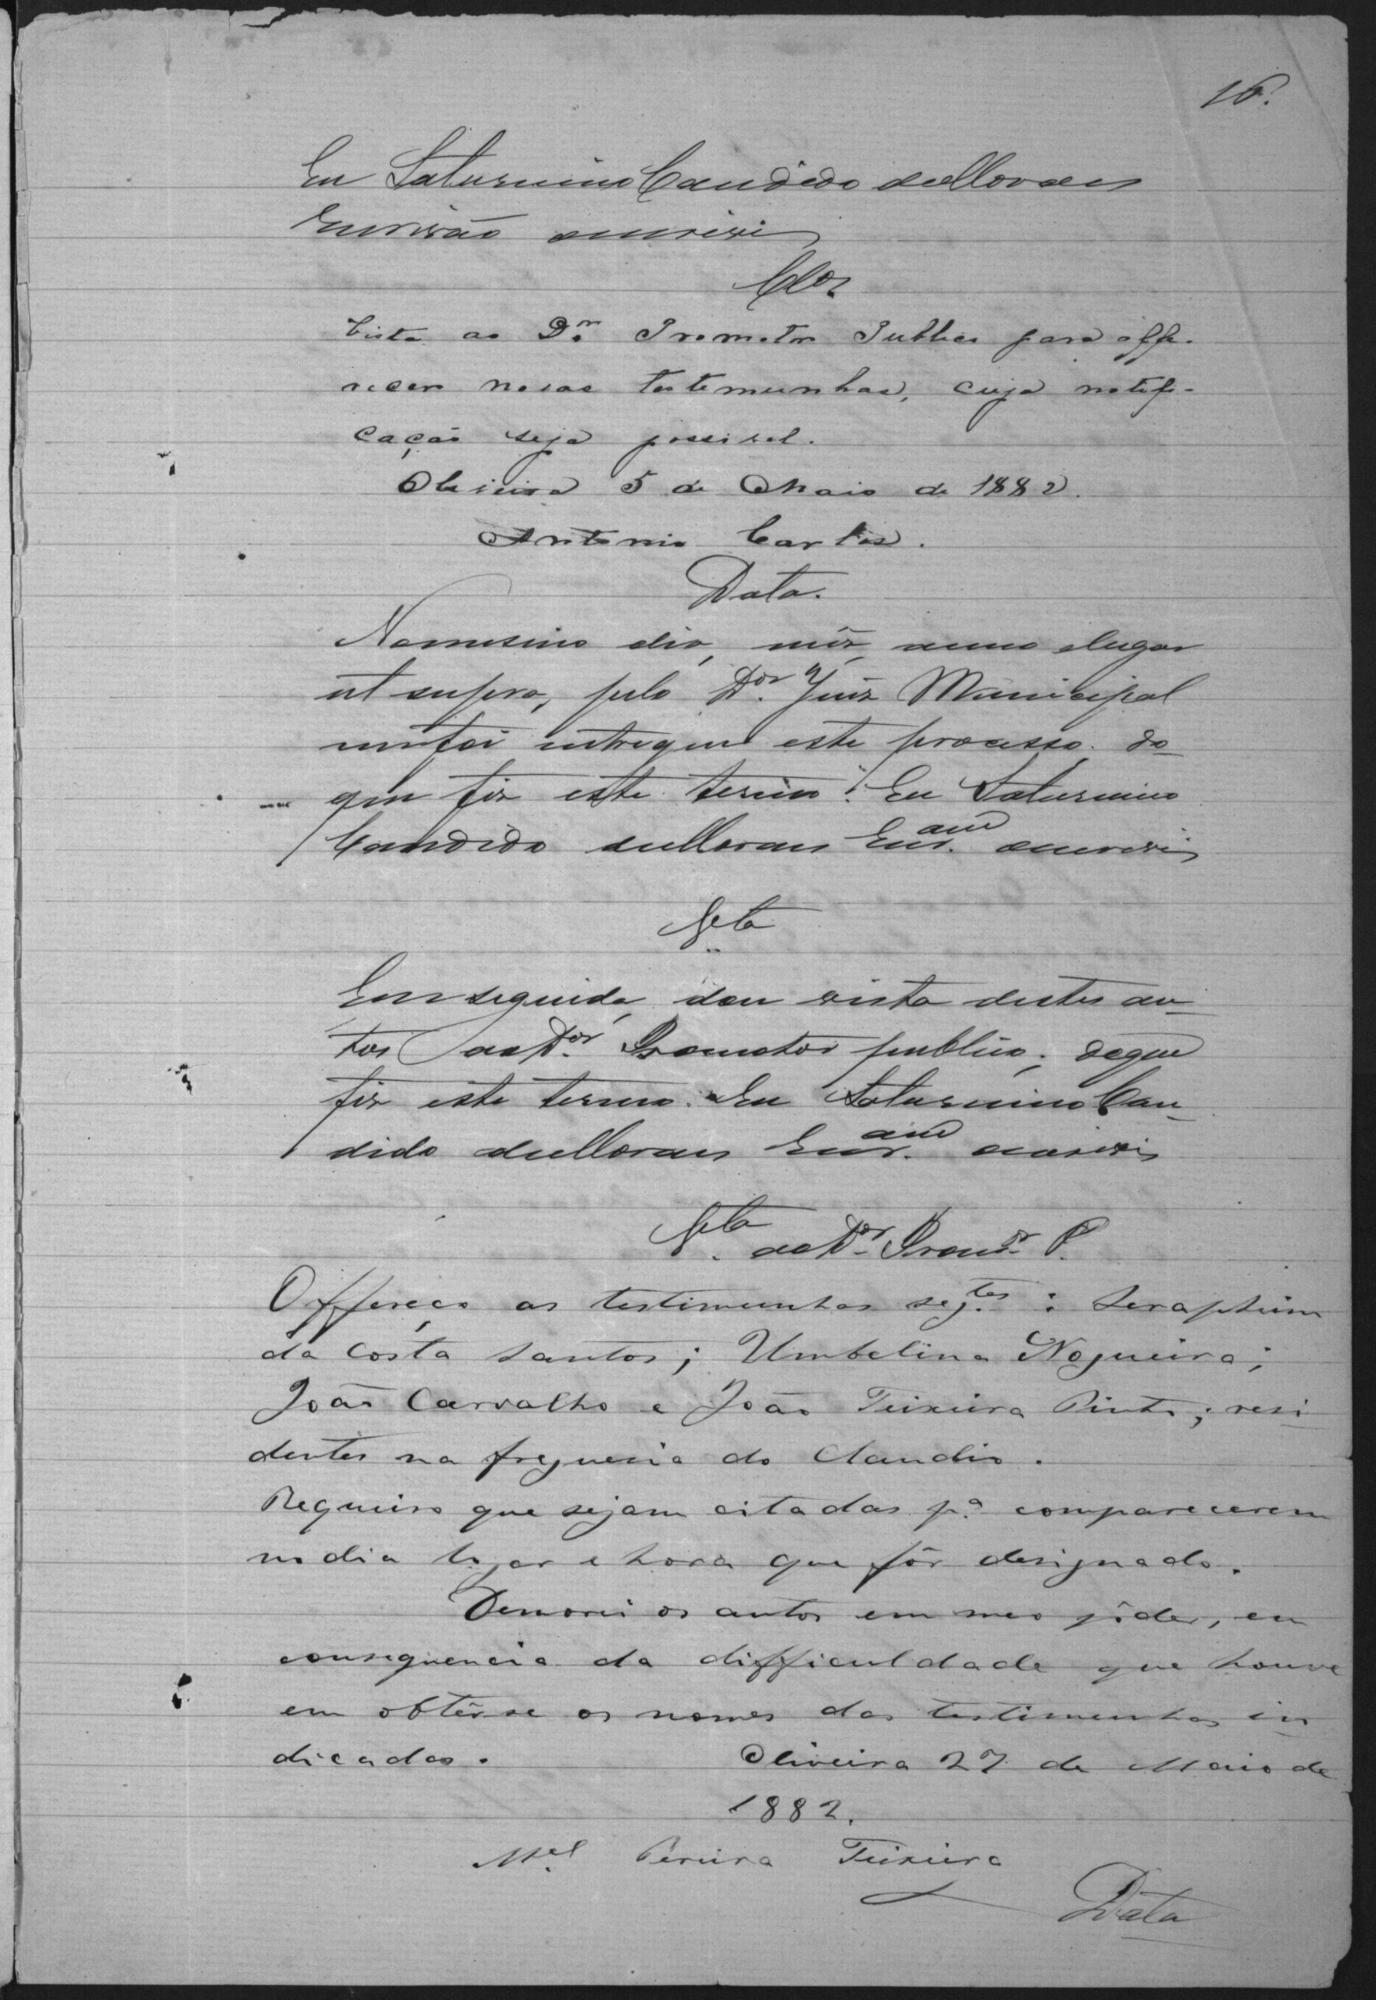 16.
Eu Saturnino Candido de Moraes
Escrivão escrevi
Clos
Vista ao Dr. Promotor Publico para offe-
recer novas testemunhas, cuja notifi-
cação seja possivel.
Oliveira 5 de Maio de 1882.
Antonio Carlos.
Data.
No mesmo dia, mêz, anno e lugar
ut supra, pelo Dor. Juiz Municipal
me foi entregue este processo. do
que fiz este termo. Eu Saturnino
Candido de Moraes Escr.am escrevi
Vcta
Em seguida, dou vista destes au-
tos ao Dor. Promotor publico; do que
fiz este termo. Eu Saturnino Can-
dido de Moraes Escr.am escrevi
Vcta ao Dor. Promr. P.
Offereço as testimunhas segtes: Seraphim
da Costa Santos; Umbelina Nogueira;
João Carvalho e João Teixeira Pinto; resi
dentes na freguesia do Claudio.
Requeiro que sejam citadas pa. comparecerem
no dia logar e hora que fôr designado.
Demorei os autos em meo pôder, em
consequencia da difficuldade que houve
em obtêr-se os nomes das testimunhas in
dicadas. Oliveira 27 de Maio de
1882.
Mel. Pereira Teixeira
Data